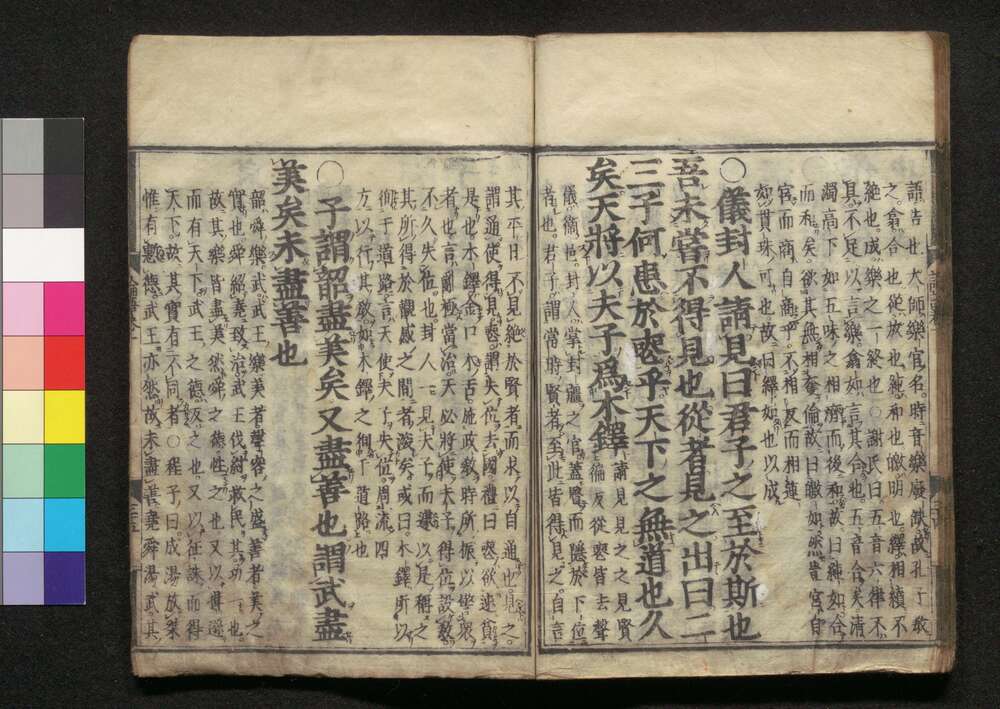 語告也大師樂官名時音樂廢缺故孔子教
之翕合也從放也純和也皦明也繹相續不
絶也成樂之一終也○謝氏曰五音六律不
具不足以言樂翕如言其合也五音合矣清
濁高下如五味之相濟而後和故曰純如合
而和矣欲其無相奪倫故曰皦如然豈宮自
宮而商自商乎不相反而相連
如貫珠可也故曰繹如也以成
○儀封人請見曰君子之至於斯也
吾未嘗不得見也從者見之出曰二
三子何患於喪乎天下之無道也久
矣天將以夫子爲木鐸
請見見之之見賢
徧反從喪皆去聲
儀衛邑封人掌封疆之官蓋賢而隱於下位
者也君子謂當時賢者至此皆得見之自言
其平日不見絶於賢者而求以自通也見之
謂通使得見喪謂失位去國禮曰喪欲速貧
是也木鐸金口木舌施政教時所振以警衆
者也言亂極當治天必將使夫子得位設教
不久失位也封人一見夫子而遽以是稱之
其所得於觀感之間者深矣或曰木鐸所以
徇于道路言天使夫子失位周流四
方以行其教如木鐸之徇于道路也
○子謂韶盡美矣又盡善也謂武盡
美矣未盡善也
韶舜樂武武王樂美者聲容之盛善者美之
實也舜紹堯致治武王伐紂救民其功一也
故其樂皆盡美然舜之德性之也又以揖遜
而有天下武王之德反之也又以征誅而得
天下故其實有不同者○程子曰成湯放桀
惟有慙德武王亦然故未盡善堯舜湯武其